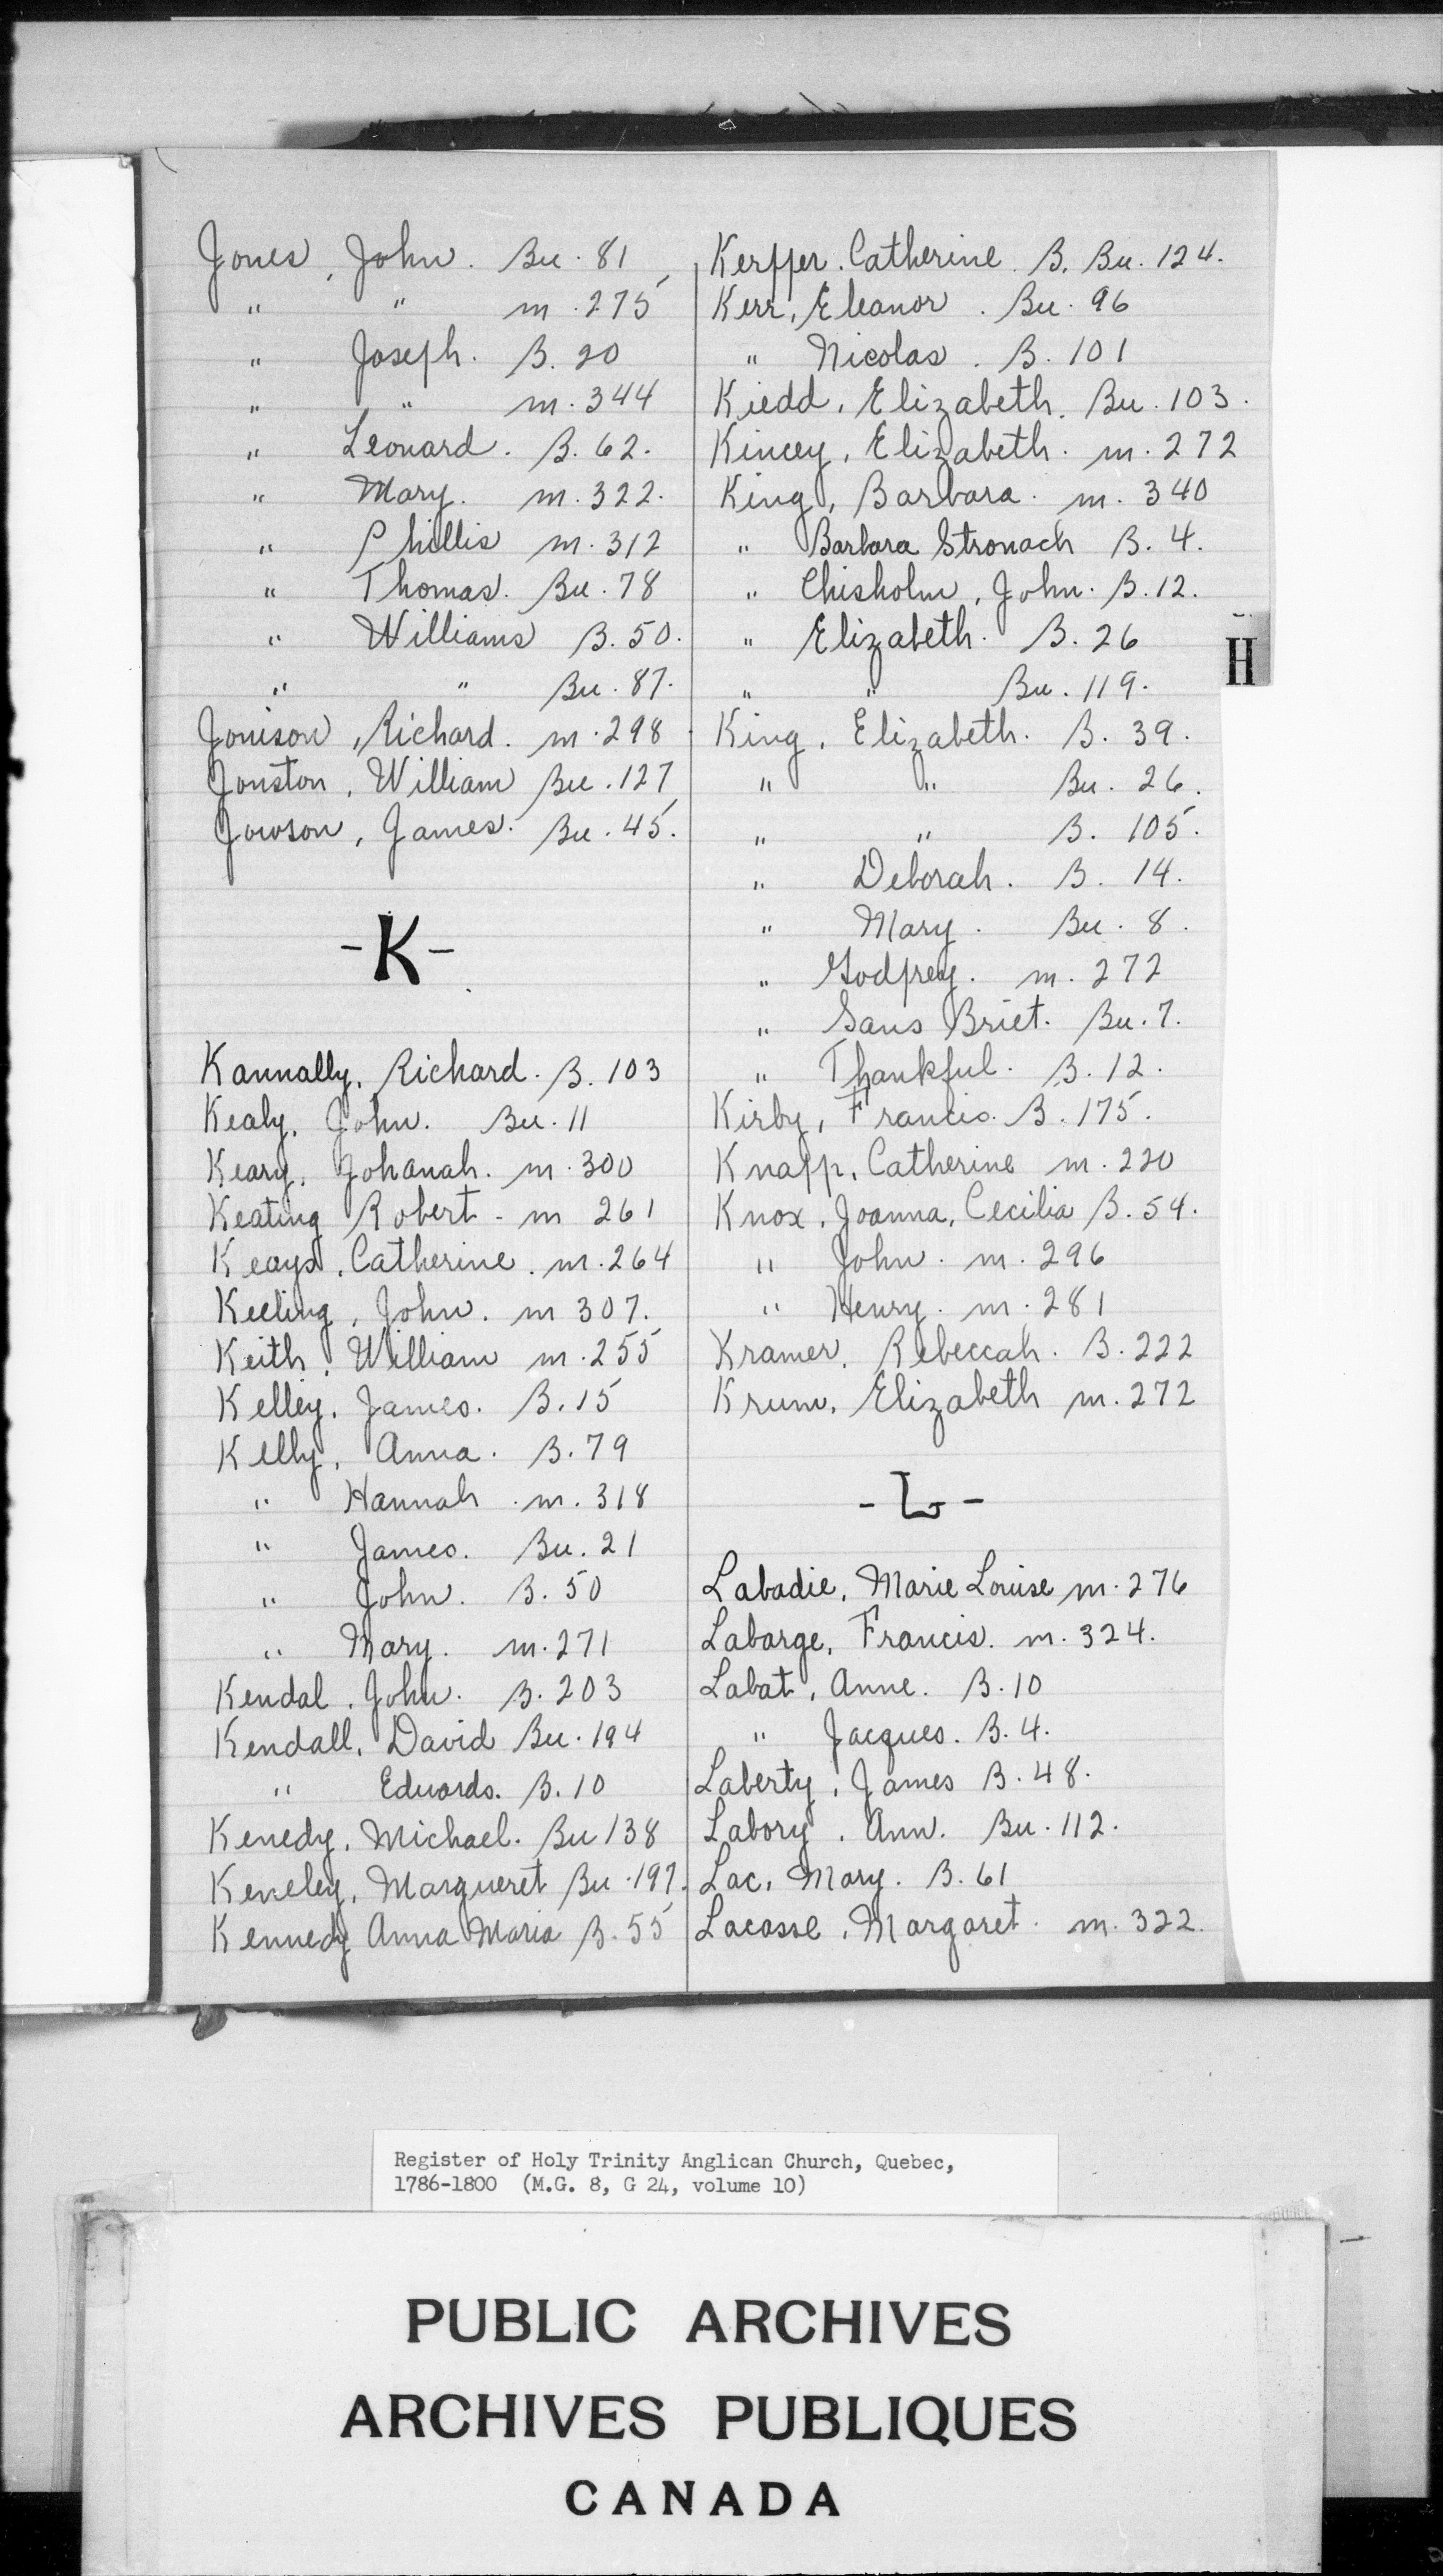 Jones, John. Bu. 81
" " m. 275
" Joseph. B. 20
" " m. 344
" Leonard. B. 62.
" Mary. m. 322.
" Phillis m. 312
" Thomas. Bu. 78
" Williams B. 50.
" " Bu. 87.
Jonison, Richard. m. 298
Jonston, William Bu. 127
Jowson, James. Bu. 45.
-K-
Kannally, Richard. B. 103
Kealy, John. Bu. 11
Keary, Johanah. m. 300
Keating Robert - m 261
Keays, Catherine. m. 264
Keeling, John. m 307.
Keith, William m. 255
Kelley, James. B. 15
Kelly, Anna. B. 79
" Hannah. m. 318
" James. Bu. 21
" John. B. 50
" Mary. m. 271
Kendal, John. B. 203
Kendall, David Bu. 194
" Edwards. B. 10
Kenedy, Michael. Bu 138
Keneley, Margueret Bu. 197.
Kennedy Anna Maria B. 55
Kerffer. Catherine. B. Bu. 124.
Kerr, Eleanor. Bu. 96
" Nicolas. B. 101
Kiedd, Elizabeth. Bu. 103.
Kincey, Elizabeth. m. 272
King, Barbara. m. 340
" Barbara Stronach B. 4.
" Chisholm, John. B. 12.
" Elizabeth. B. 26
" " Bu. 119.
King, Elizabeth. B. 39.
" " Bu. 26.
" " B. 105.
" Deborah. B. 14.
" Mary. Bu. 8.
" Godfrey. m. 272
" Sans Briet. Bu. 7.
" Thankful. B. 12.
Kirby, Francis. B. 175.
Knapp, Catherine m. 220
Knox, Joanna, Cecilia B. 54.
" John. m. 296
" Henry. m. 281
Kramer, Rebeccah. B. 222
Krum, Elizabeth m. 272
-L-
Labadie, Marie Louise m. 276
Labarge, Francis. m. 324.
Labat, Anne. B. 10
" Jacques. B. 4.
Laberty, James B. 48.
Labory, Ann. Bu. 112.
Lac, Mary. B. 61
Lacasse, Margaret. m. 322.
H
Register of Holy Trinity Anglican Church, Quebec,
1786-1800 (M.G. 8, G 24, volume 10)
PUBLIC ARCHIVES
ARCHIVES PUBLIQUES
CANADA